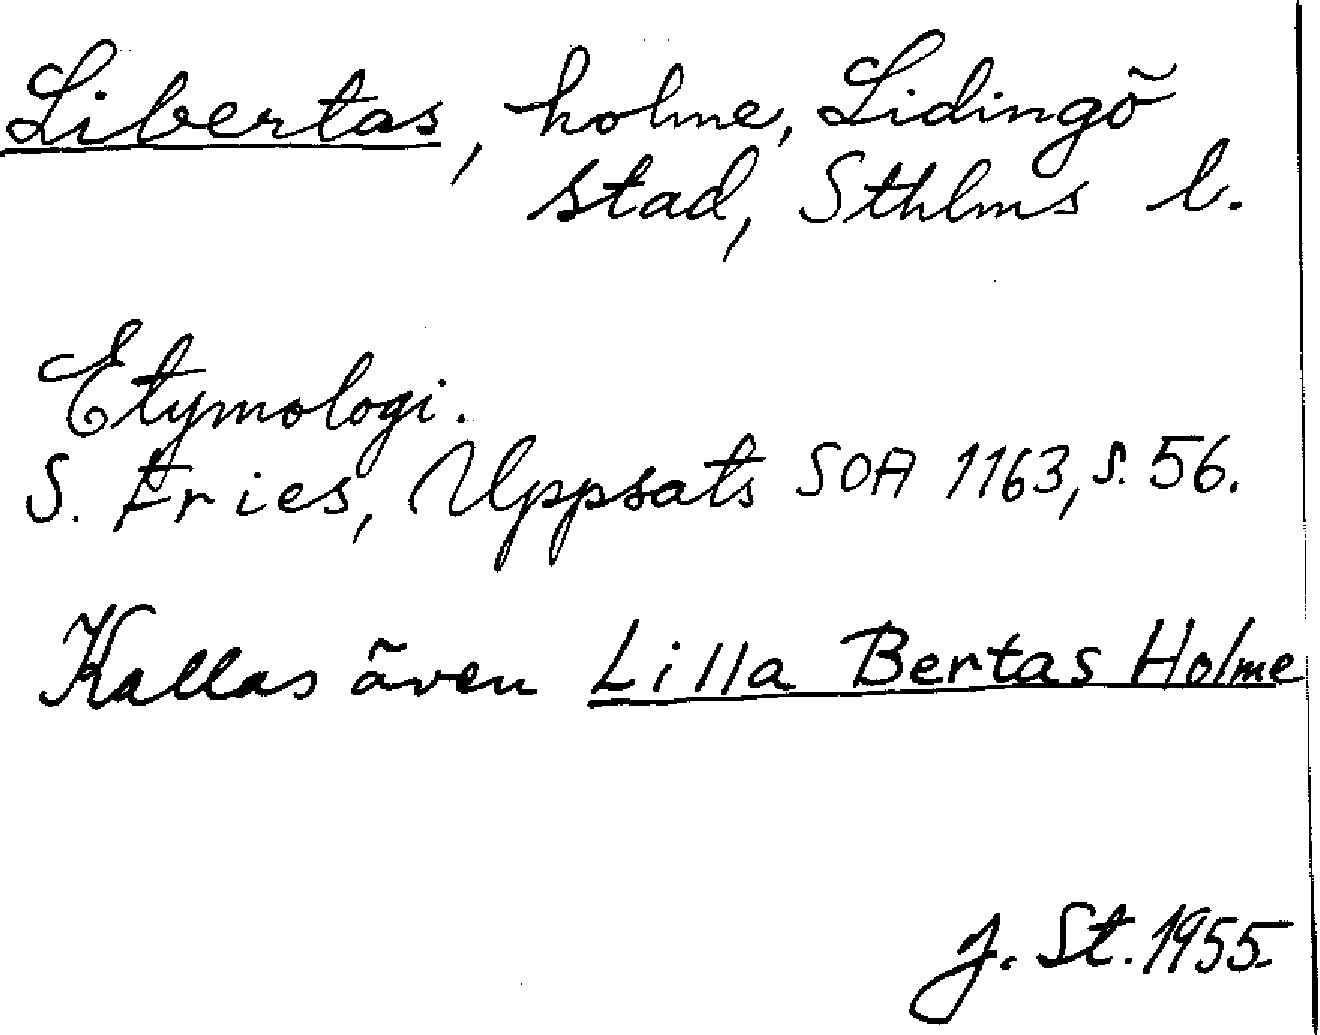 Libertas, holme, Lidingö
stad, Sthlms l.
Etymologi.
S. Fries, Uppsats SOA 1163, s. 56.
Kallas även Lilla Bertas Holme
J. St. 1955